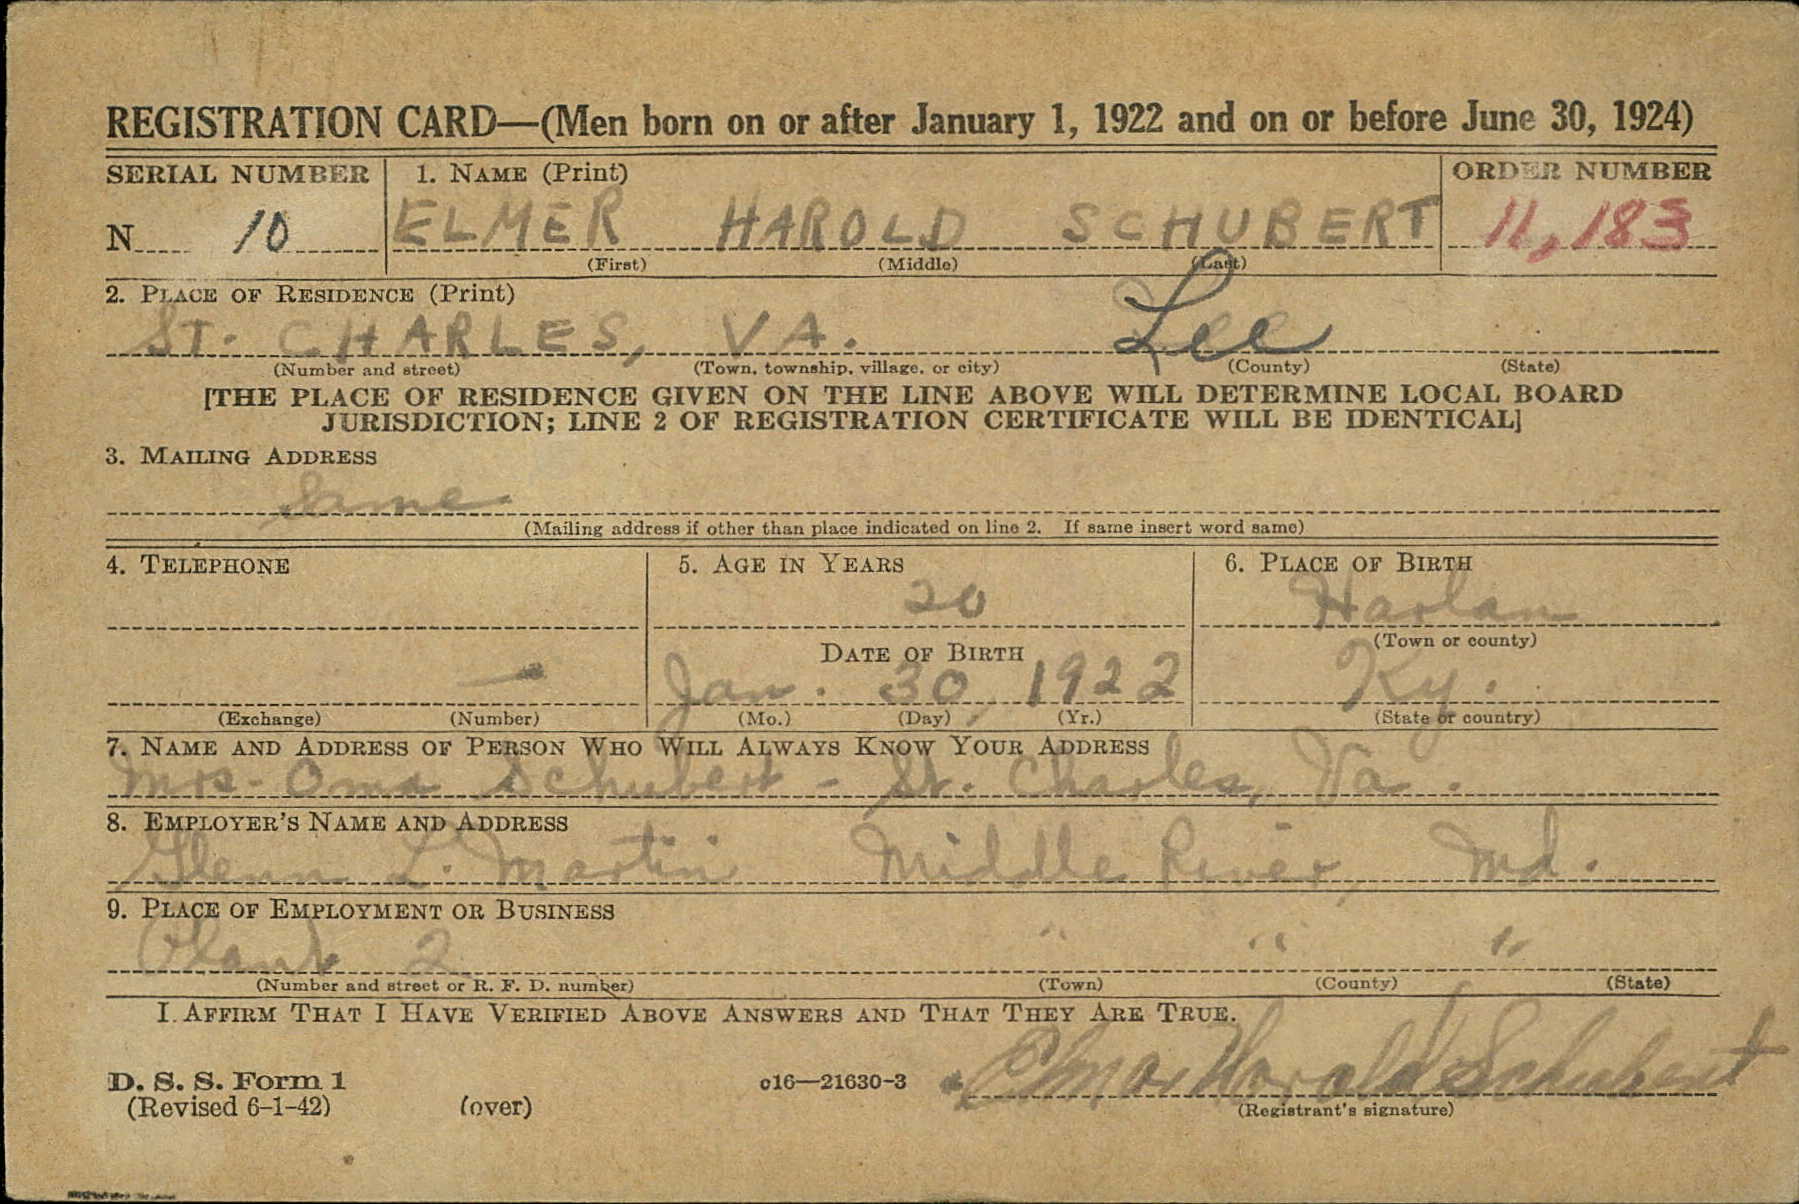 REGISTRATION CARD—(Men born on or after January 1, 1922 and on or before June 30, 1924)
SERIAL NUMBER 1. NAME (Print) ORDER NUMBER
N 10 ELMER HAROLD SCHUBERT 11,183
(First) (Middle) (Last)
2. PLACE OF RESIDENCE (Print)
ST. CHARLES, VA. Lee
(Number and street) (Town, township, village, or city) (County) (State)
[THE PLACE OF RESIDENCE GIVEN ON THE LINE ABOVE WILL DETERMINE LOCAL BOARD
JURISDICTION; LINE 2 OF REGISTRATION CERTIFICATE WILL BE IDENTICAL]
3. MAILING ADDRESS
Same
(Mailing address if other than place indicated on line 2. If same insert word same)
4. TELEPHONE 5. AGE IN YEARS 6. PLACE OF BIRTH
20 Harlan
DATE OF BIRTH (Town or county)
— Jan. 30, 1922 Ky.
(Exchange) (Number) (Mo.) (Day) (Yr.) (State or country)
7. NAME AND ADDRESS OF PERSON WHO WILL ALWAYS KNOW YOUR ADDRESS
Mrs. Oma Schubert - St. Charles, Va.
8. EMPLOYER'S NAME AND ADDRESS
Glenn L. Martin Middle River, Md.
9. PLACE OF EMPLOYMENT OR BUSINESS
Plant 2 " " "
(Number and street or R. F. D. number) (Town) (County) (State)
I AFFIRM THAT I HAVE VERIFIED ABOVE ANSWERS AND THAT THEY ARE TRUE.
D. S. S. Form 1 c16—21630-3 Elmer Harold Schubert
(Revised 6-1-42) (over) (Registrant's signature)